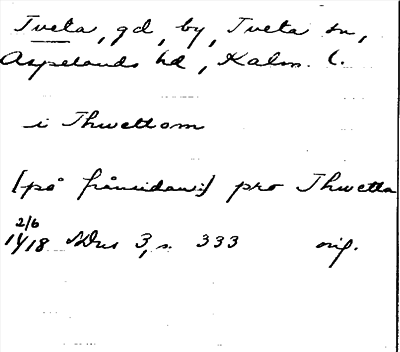 Tveta, gd, by, Tveta sn,
Aspelands hd, Kalm. l.
i Thwettom
[på frånsidan:] pro Thwetta
2/6
1418 SDns 3, s. 333 orig.